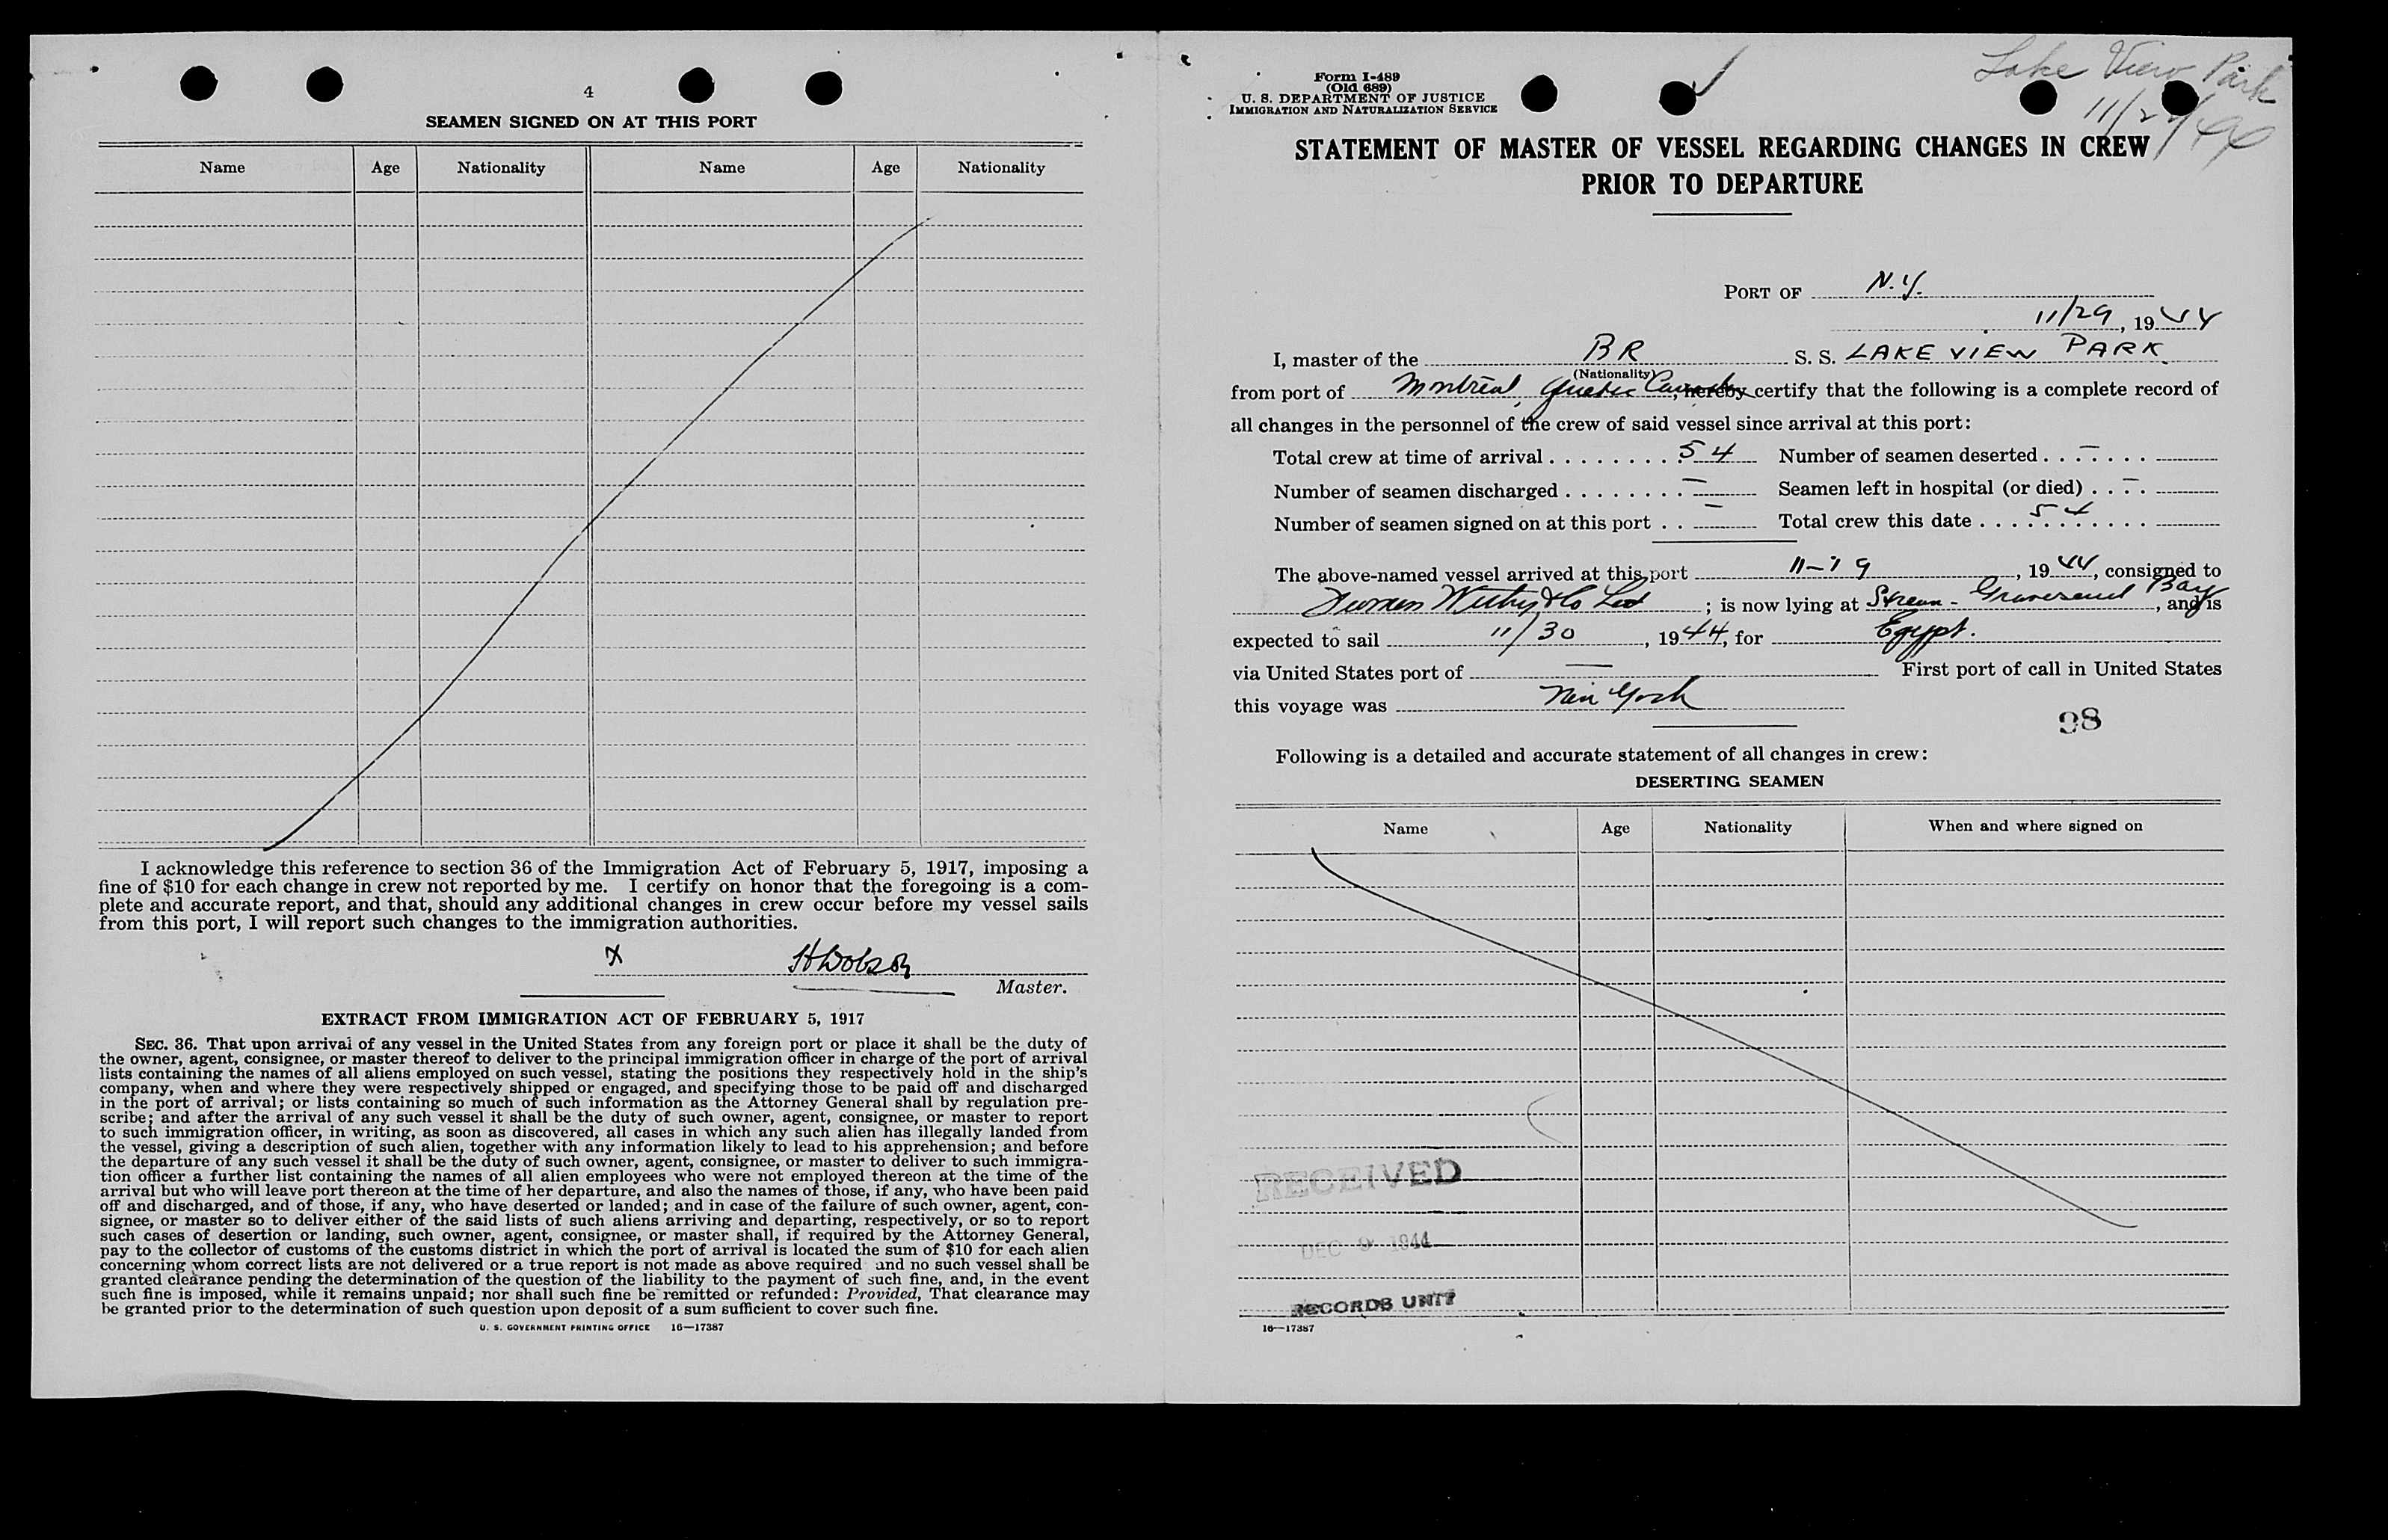 4
SEAMEN SIGNED ON AT THIS PORT
Name Age Nationality Name Age Nationality
I acknowledge this reference to section 36 of the Immigration Act of February 5, 1917, imposing a
fine of $10 for each change in crew not reported by me. I certify on honor that the foregoing is a com-
plete and accurate report, and that, should any additional changes in crew occur before my vessel sails
from this port, I will report such changes to the immigration authorities.
X HDobson
Master.
EXTRACT FROM IMMIGRATION ACT OF FEBRUARY 5, 1917
SEC. 36. That upon arrival of any vessel in the United States from any foreign port or place it shall be the duty of
the owner, agent, consignee, or master thereof to deliver to the principal immigration officer in charge of the port of arrival
lists containing the names of all aliens employed on such vessel, stating the positions they respectively hold in the ship's
company, when and where they were respectively shipped or engaged, and specifying those to be paid off and discharged
in the port of arrival; or lists containing so much of such information as the Attorney General shall by regulation pre-
scribe; and after the arrival of any such vessel it shall be the duty of such owner, agent, consignee, or master to report
to such immigration officer, in writing, as soon as discovered, all cases in which any such alien has illegally landed from
the vessel, giving a description of such alien, together with any information likely to lead to his apprehension; and before
the departure of any such vessel it shall be the duty of such owner, agent, consignee, or master to deliver to such immigra-
tion officer a further list containing the names of all alien employees who were not employed thereon at the time of the
arrival but who will leave port thereon at the time of her departure, and also the names of those, if any, who have been paid
off and discharged, and of those, if any, who have deserted or landed; and in case of the failure of such owner, agent, con-
signee, or master so to deliver either of the said lists of such aliens arriving and departing, respectively, or so to report
such cases of desertion or landing, such owner, agent, consignee, or master shall, if required by the Attorney General,
pay to the collector of customs of the customs district in which the port of arrival is located the sum of $10 for each alien
concerning whom correct lists are not delivered or a true report is not made as above required and no such vessel shall be
granted clearance pending the determination of the question of the liability to the payment of such fine, and, in the event
such fine is imposed, while it remains unpaid; nor shall such fine be remitted or refunded: Provided, That clearance may
be granted prior to the determination of such question upon deposit of a sum sufficient to cover such fine.
U. S. GOVERNMENT PRINTING OFFICE 16—17387
Form I-489
(Old 689)
U. S. DEPARTMENT OF JUSTICE
IMMIGRATION AND NATURALIZATION SERVICE
Lake View Park
STATEMENT OF MASTER OF VESSEL REGARDING CHANGES IN CREW
PRIOR TO DEPARTURE
PORT OF N.Y.
11/29, 1944
I, master of the BR S. S. LAKE VIEW PARK
(Nationality)
from port of Montreal, Quebec Canada, hereby certify that the following is a complete record of
all changes in the personnel of the crew of said vessel since arrival at this port:
Total crew at time of arrival 54 Number of seamen deserted —
Number of seamen discharged — Seamen left in hospital (or died) —
Number of seamen signed on at this port — Total crew this date 54
The above-named vessel arrived at this port 11-19, 1944, consigned to
Withy & Co Ltd; is now lying at Stream - Gravesend Bay, and is
expected to sail 11/30, 1944, for Egypt.
via United States port of — First port of call in United States
this voyage was New York
98
Following is a detailed and accurate statement of all changes in crew:
DESERTING SEAMEN
Name Age Nationality When and where signed on
RECEIVED
DEC 9 1944
RECORDS UNIT
16—17387